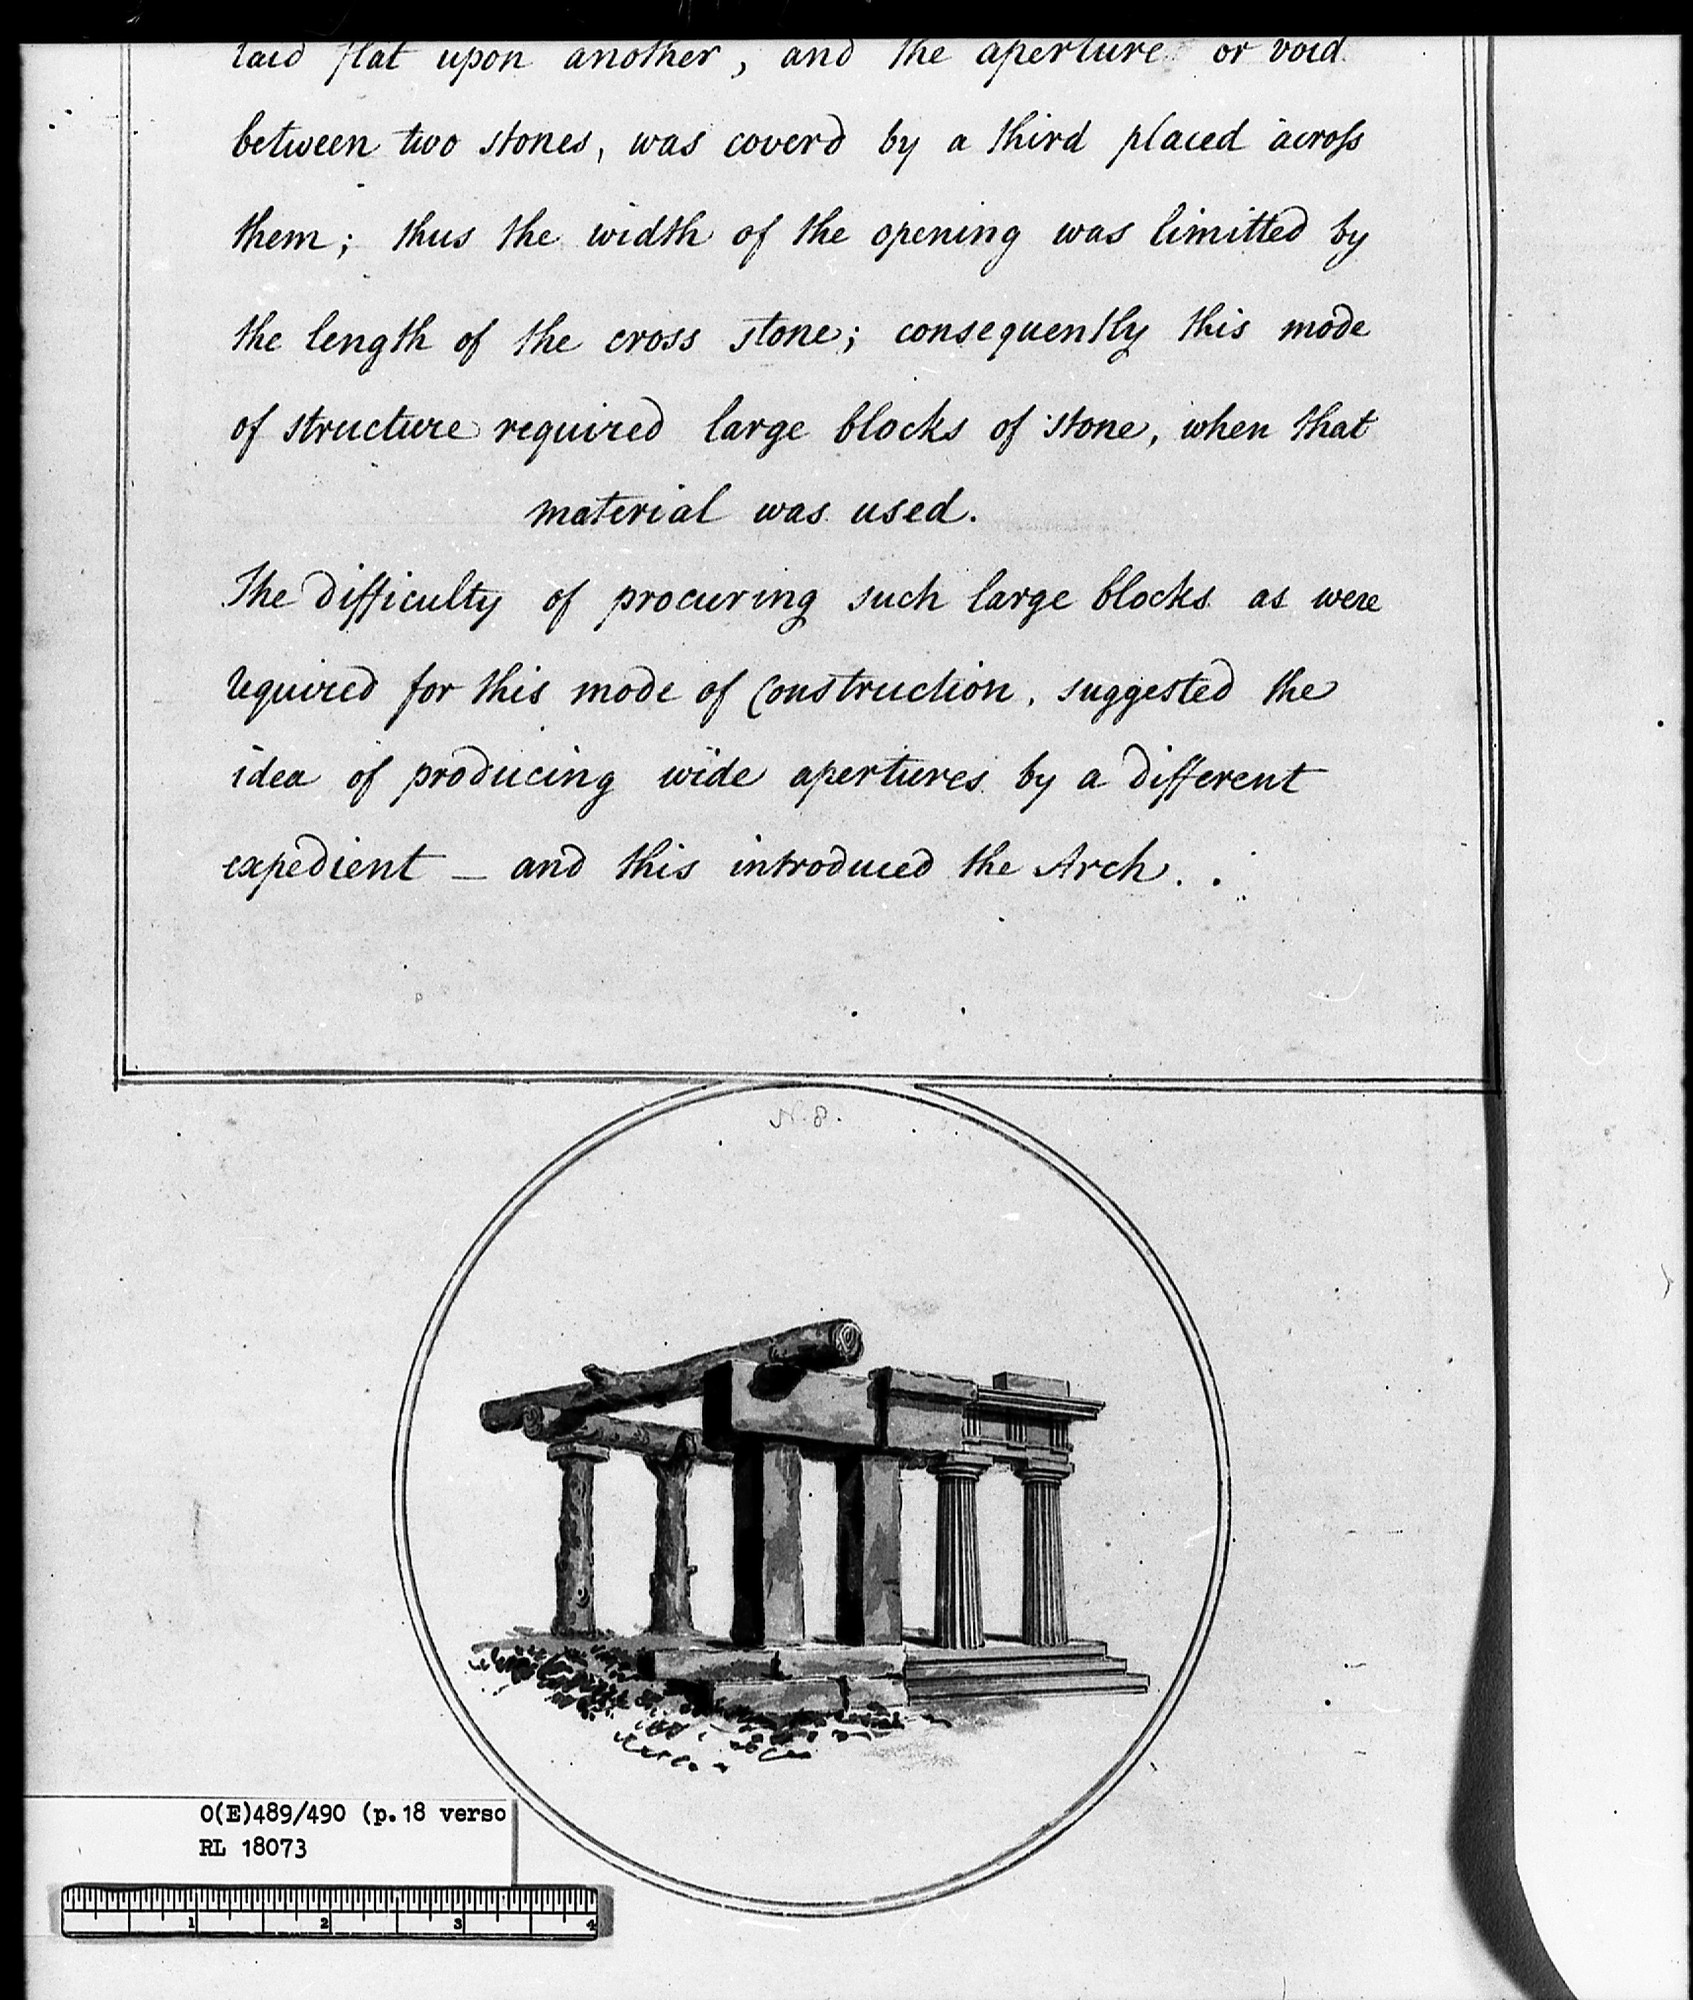 laid flat upon another, and the aperture or void
between two stones, was coverd by a third placed across
them; thus the width of the opening was limitted by
the length of the cross stone; consequently this mode
of structure required large blocks of stone, when that
material was used.
The difficulty of procuring such large blocks as were
required for this mode of Construction, suggested the
idea of producing wide apertures by a different
expedient — and this introduced the Arch.
N. 8.
O(E)489/490 (p.18 verso
RL 18073
1 2 3 4